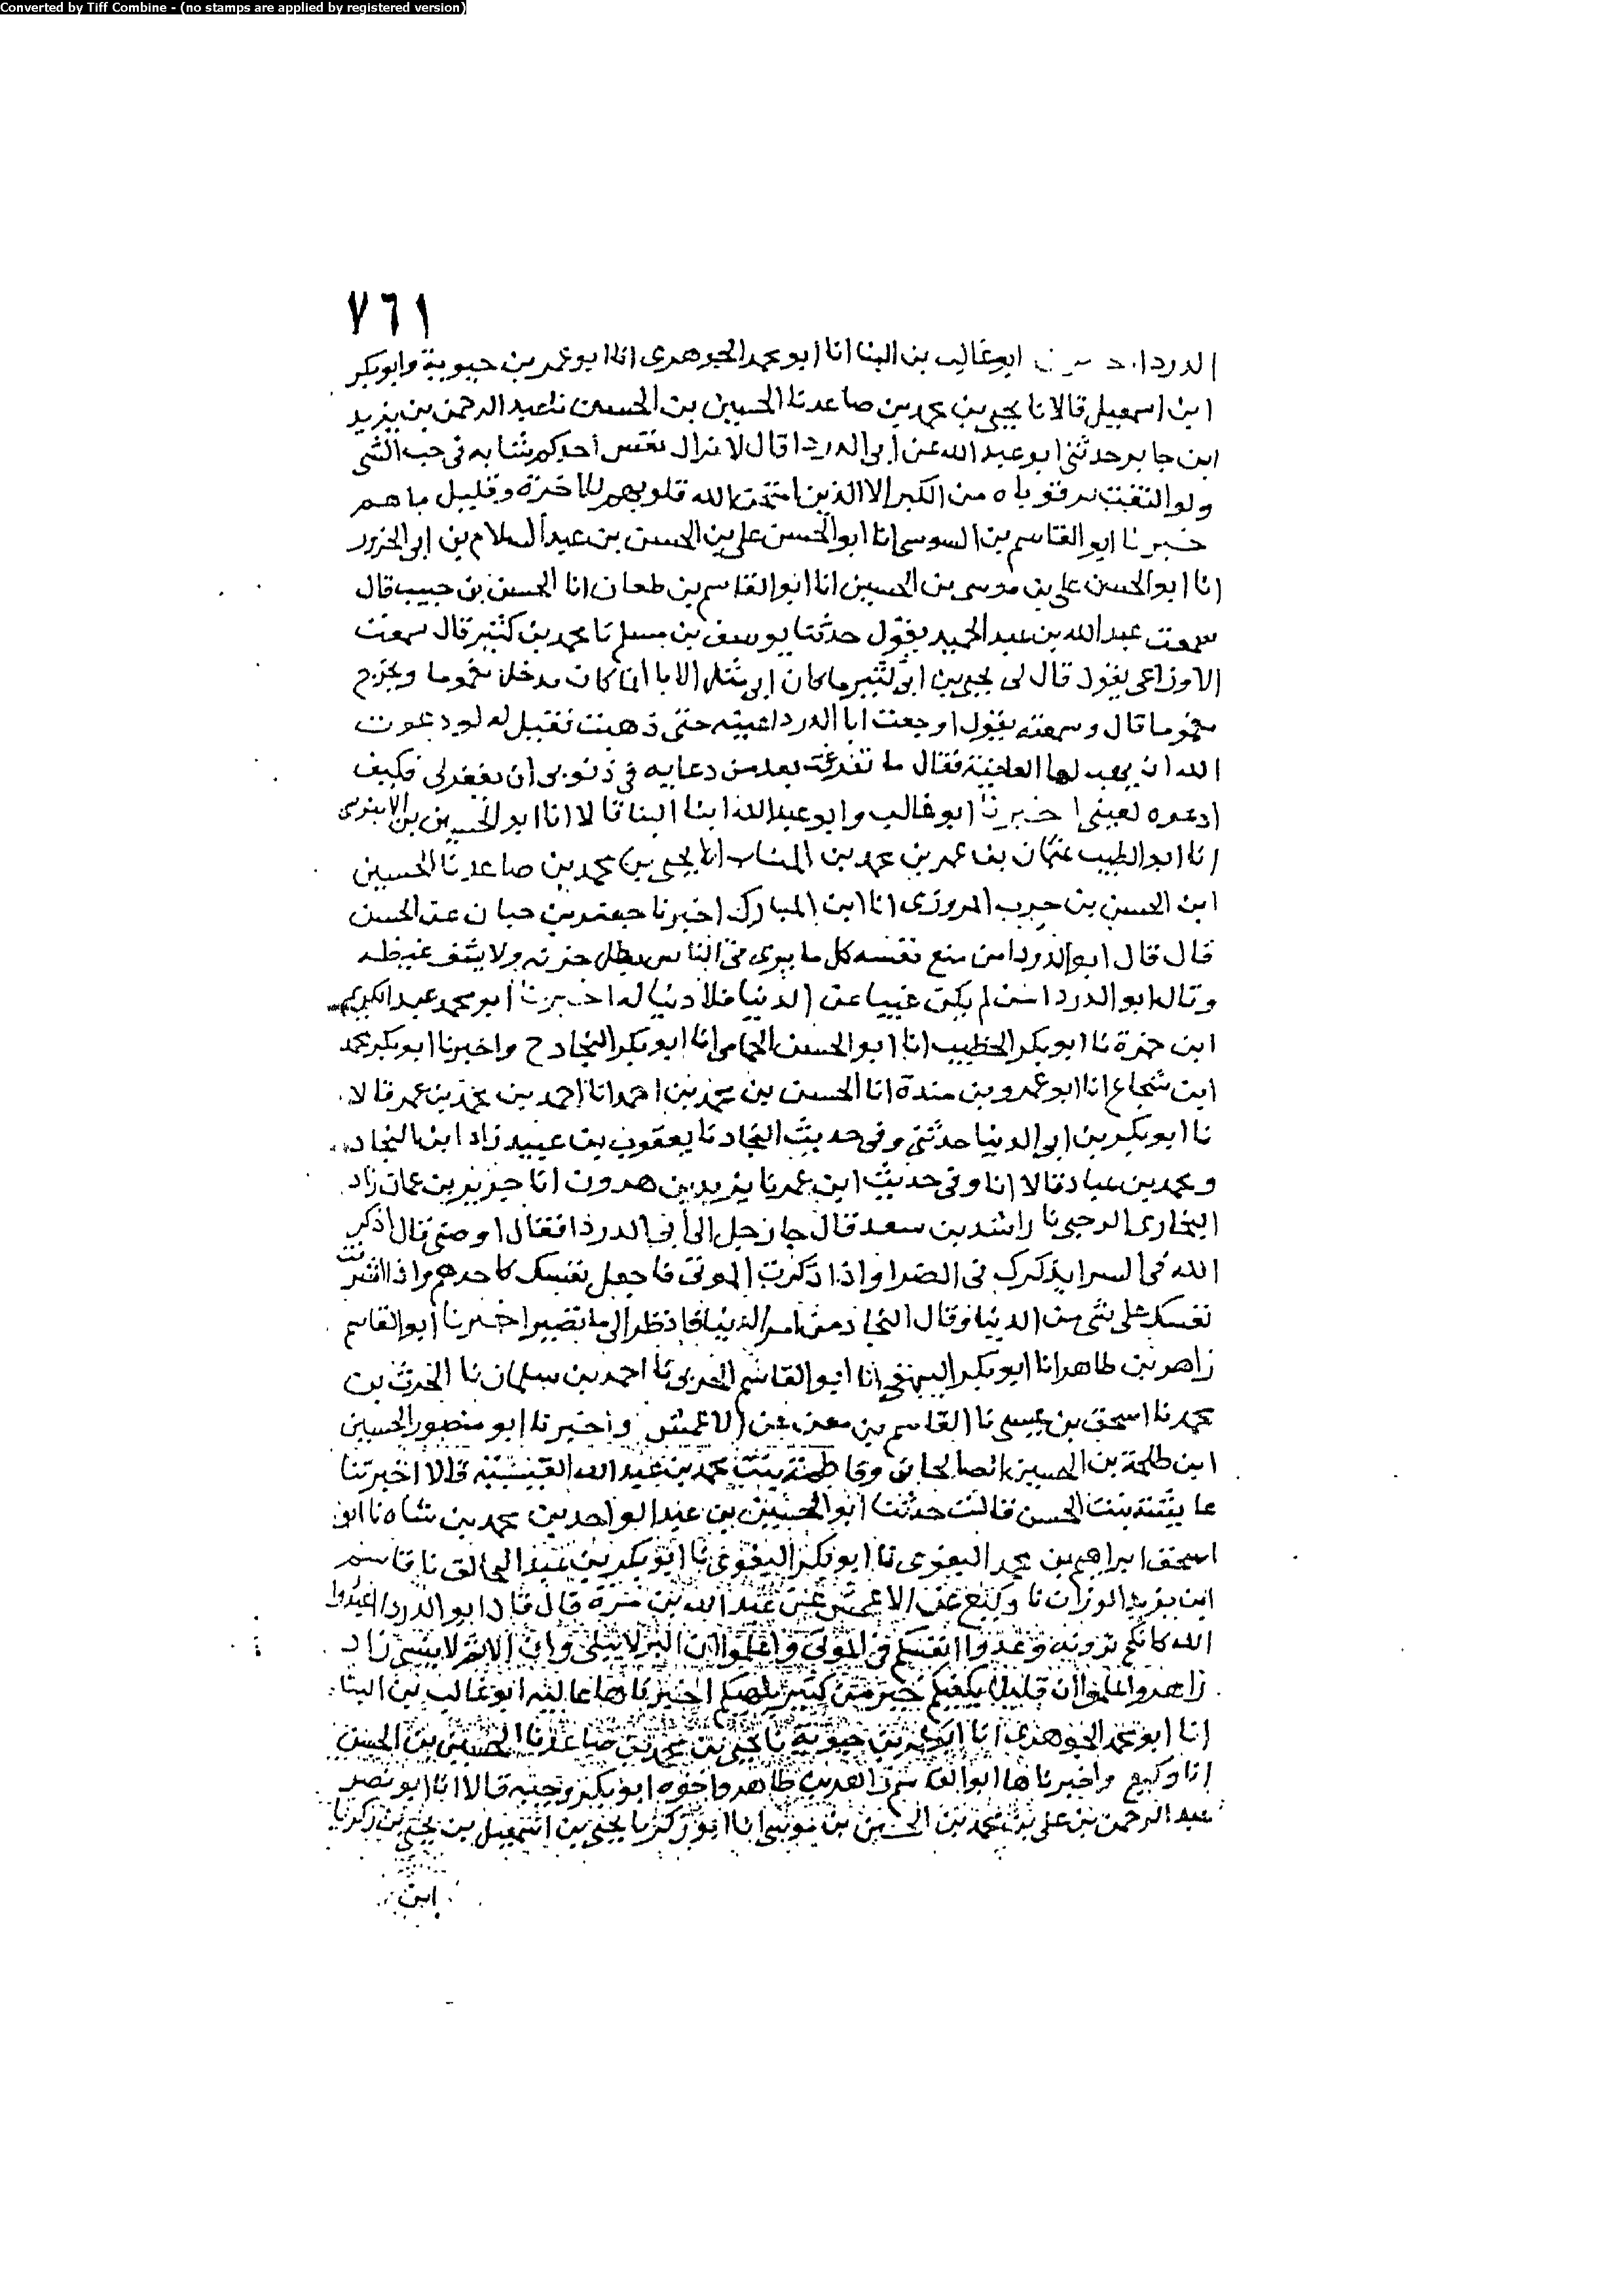 Converted by Tiff Combine - (no stamps are applied by registered version)
٧٦١
الدردا ابو غالب بن البنا انا ابو محمد الجوهرى انا ابو عمر بن حيوية وابو بكر
ابن اسمعيل قالا نا يحيى بن محمد بن صاعد نا الحسين بن الحسين نا عبد الرحمن بن يزيد
ابن جابر حدثنى ابو عبد الله عن ابى الدردا قال لا تزال نفس احدكم شابه فى حب الشى
ولو التقت ترقوتاه من الكبر الا الذين امتحن الله قلوبهم للاخرة وقليل ما هم
خبرنا ابو القاسم بن السوسى انا ابو الحسن على بن الحسن بن عبد السلام بن ابى الحزور
انا ابو الحسن على بن موسى بن الحسين انا ابو القاسم بن طعان انا الحسن بن حبيب قال
سمعت عبد الله بن عبد الحميد يقول حدثنا يوسف بن مسلم نا محمد بن كثير قال سمعت
الاوزاعى يقول قال لى يحيى بن ابى كثير ما كان ابى مثله الا با انا كان يدخل مخموما ويخرج
مخموما قال وسمعته يقول اوجعت ابا الدردا عينه حتى ذهبت فقيل له لو دعوت
الله ان يهب لها العافية فقال ما تفرغت بعد من دعايه فى ذنوبى ان يغفر لى فكيف
ادعوه لعينى اخبرنا ابو غالب وابو عبد الله ابنا البنا قالا انا ابو الحسين بن الابنوسى
انا ابو الطيب عثمان بن عمر بن محمد بن المنتاب انا يحيى بن محمد بن صاعد نا الحسين
ابن الحسن بن حرب المروزى انا ابن المبارك اخبرنا جعفر بن حيان عن الحسن
قال قال ابو الدردا من يتبع نفسه كل ما يرى فى الناس يطل حزنه ولا يشف غيظه
وقال ابو الدردا من لم يكن غنيا عن الدنيا فلا دنيا له اخبرنا ابو محمد عبد الكريم
ابن حمزة نا ابو بكر الخطيب انا ابو الحسن الحمامى انا ابو بكر النجاد ح واخبرنا ابو بكر محمد
ابن شجاع انا ابو عمرو بن مندة انا الحسن بن محمد بن احمد انا احمد بن محمد بن عمر قالا
نا ابو بكر بن ابى الدنيا حدثنى وفى حديث النجاد نا يعقوب بن عبيد زاد ابن النجاد
ومحمد بن عباد قالا انا وفى حديث ابن عمر نا يزيد بن هرون انا حريز بن عثمان زاد
البخارى الرحبى نا راشد بن سعد قال جا رجل الى ابى الدردا فقال اوصنى قال اذكر
الله فى السرا يذكرك فى الضرا واذا ذكرت الموتى فاجعل نفسك كاحدهم واذا اشرفت
نفسك على شى من الدنيا وقال النجاد من امر الدنيا فانظر الى ما تصير اخبرنا ابو القاسم
زاهر بن طاهر انا ابو بكر البيهقى انا ابو القاسم الحربى نا احمد بن سلمان نا الحرث بن
محمد نا اسحق بن عيسى نا القاسم بن معن عن الاعمش واخبرنا ابو منصور الحسين
ابن طلحة بن الحسين الصالحانى وفاطمة بنت محمد بن عبد الله القيسية قالا اخبرتنا
عايشة بنت الحسن قالت حدثنا ابو الحسين بن عبد الواحد بن محمد بن شاه نا ابو
اسحق ابراهيم بن محمد اليعفرى نا ابو بكر اليعفرى نا ابو بكر بن عبد الخالق نا قاسم
ابن يزيد الوزان نا وكيع عن الاعمش عن عبد الله بن مرة قال قال ابو الدردا اعبدوا
الله كانكم ترونه وعدوا انفسكم فى الموتى واعلموا ان البر لا يبلى وان الاثم لا ينسى زاد
زاهر واعلموا ان قليلا يكفيكم خير من كثير يلهيكم اخبرناها عالية ابو غالب بن البنا
انا ابو محمد الجوهرى انا ابو عمر بن حيوية نا يحيى بن محمد بن صاعد نا الحسين بن الحسن
انا وكيع واخبرناها ابو القسم زاهر بن طاهر واخوه ابو بكر وجيه قالا انا ابو نصر
عبد الرحمن بن على بن محمد بن الحسين بن موسى انا ابو زكريا يحيى بن اسمعيل بن يحيى بن زكريا
ابن